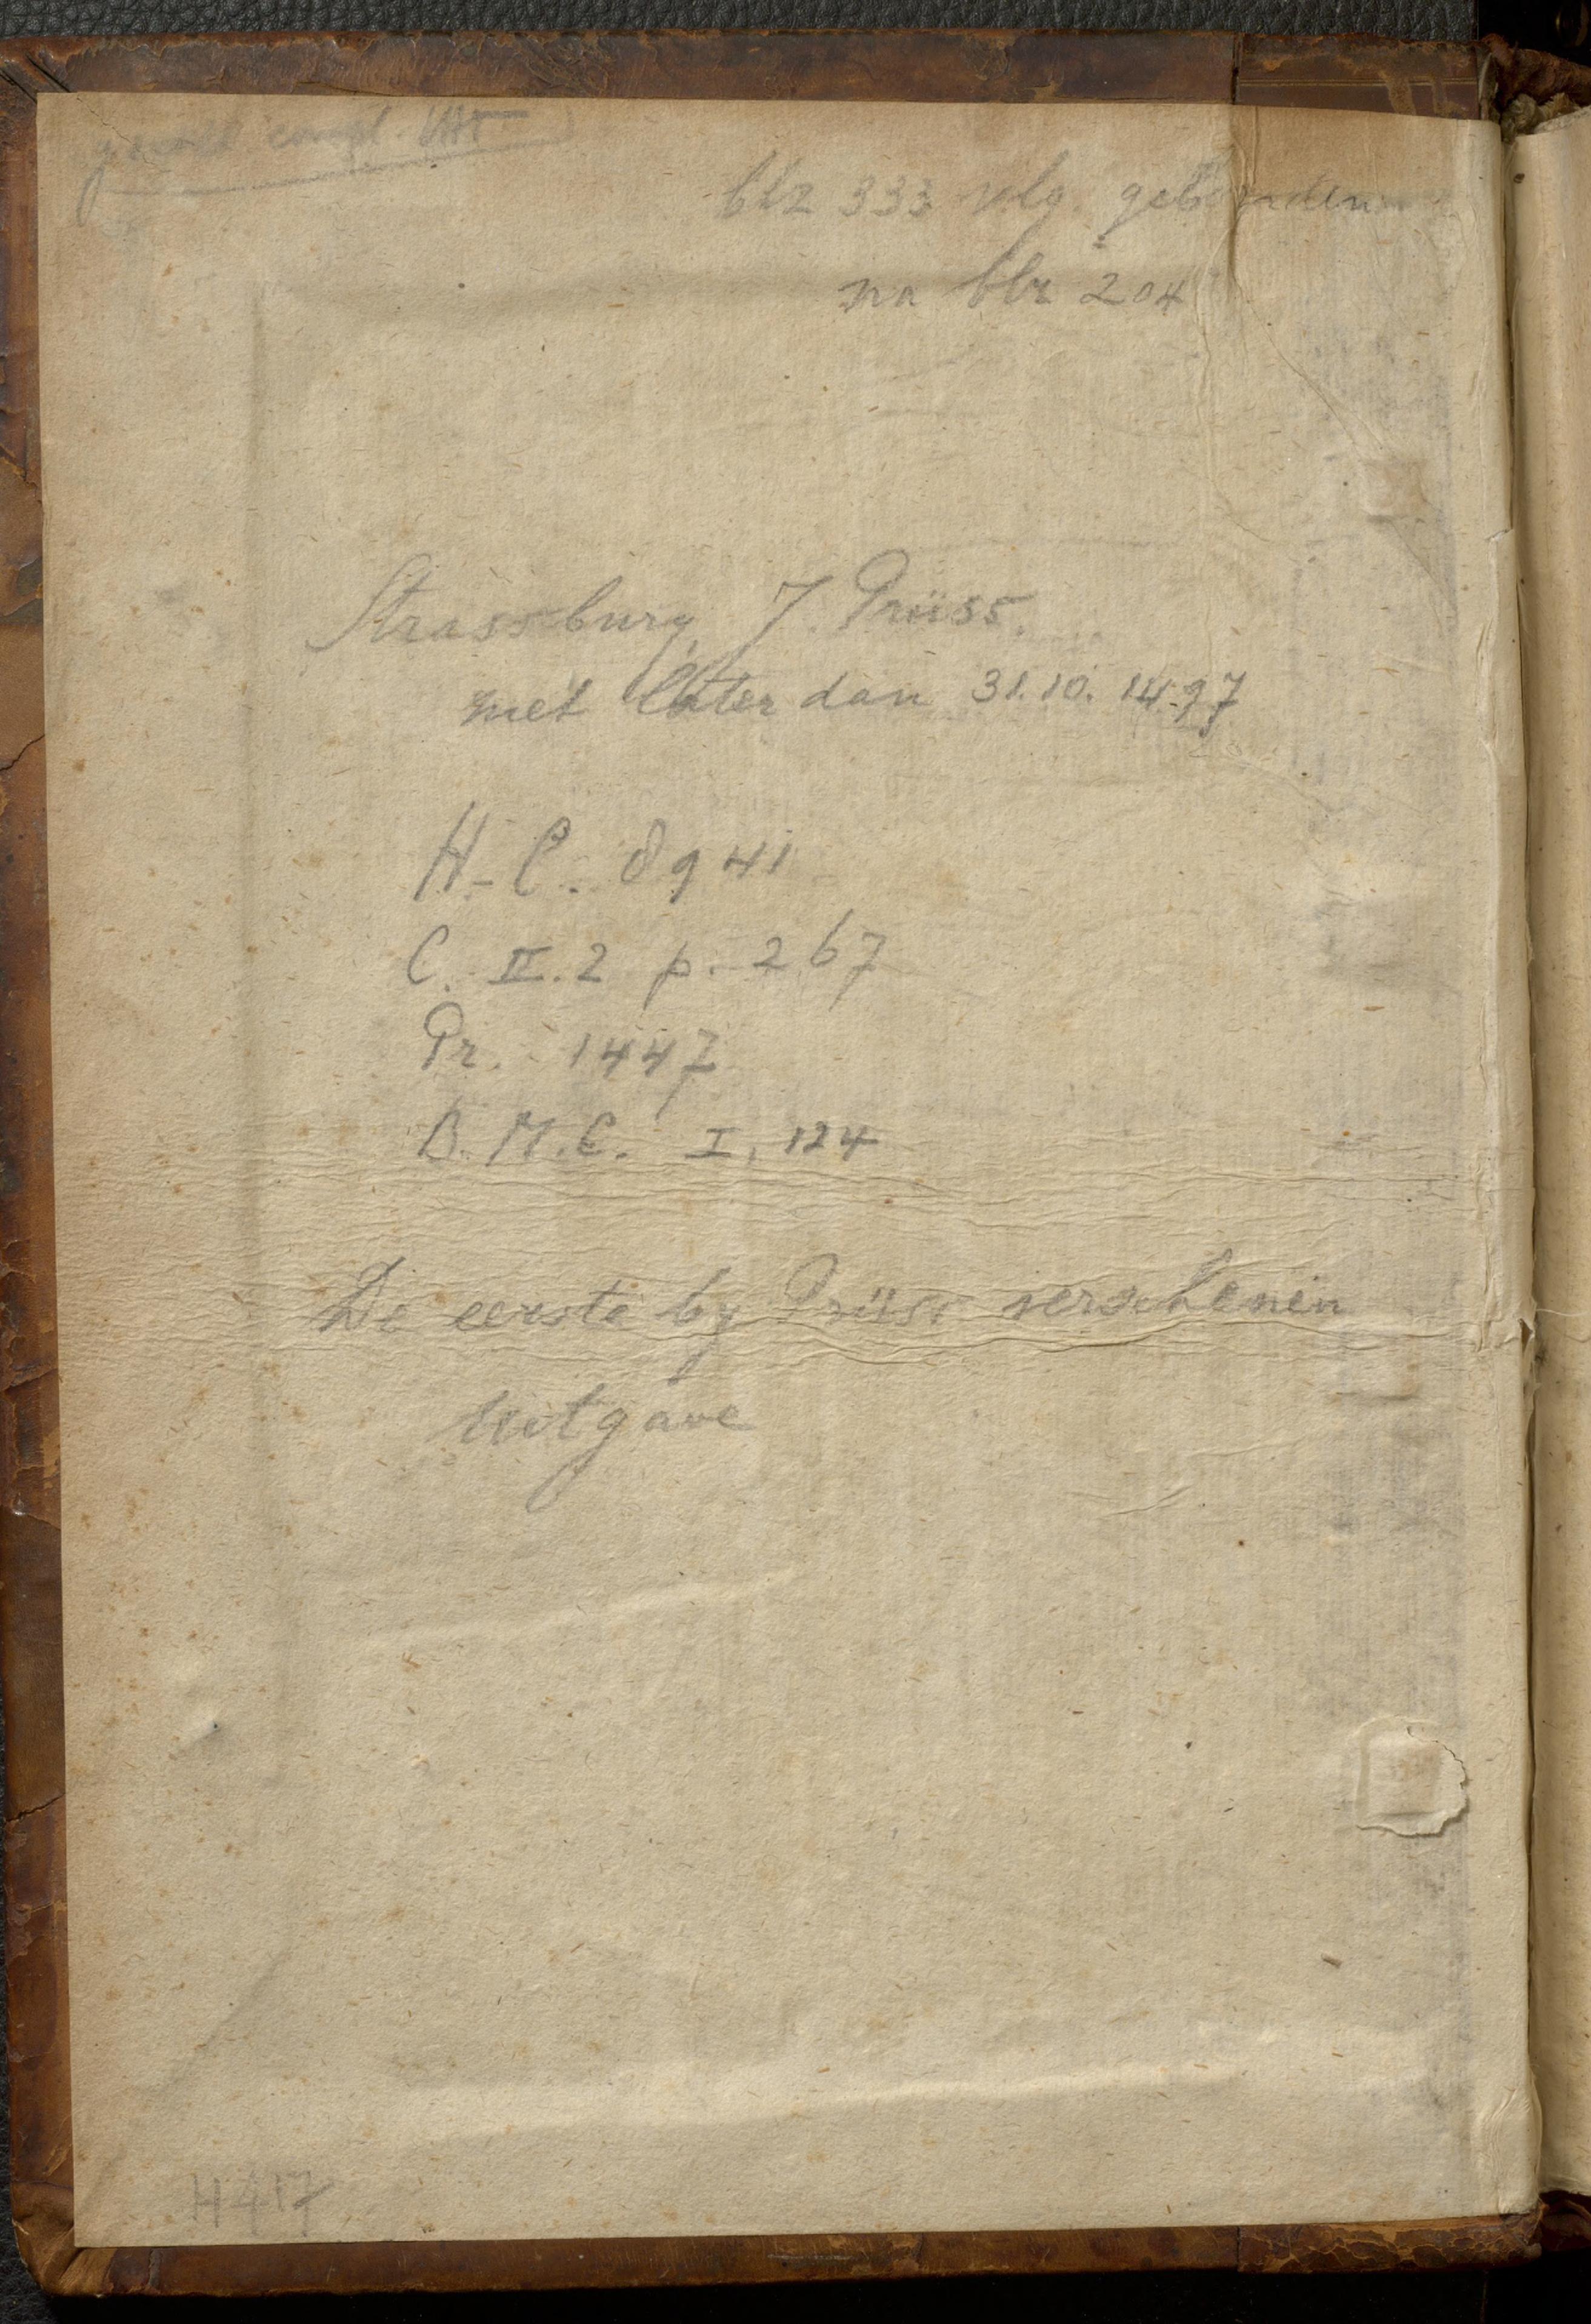 blz 333 vlg. gebonden
na blz 204
Strassburg, J. Prüss.
niet later dan 31.10.1497
H-C. 8941
C. II.2 p. 267
Pr. 1447
B.M.C. I, 124
De eerste by Prüss verschenen
uitgave
H417